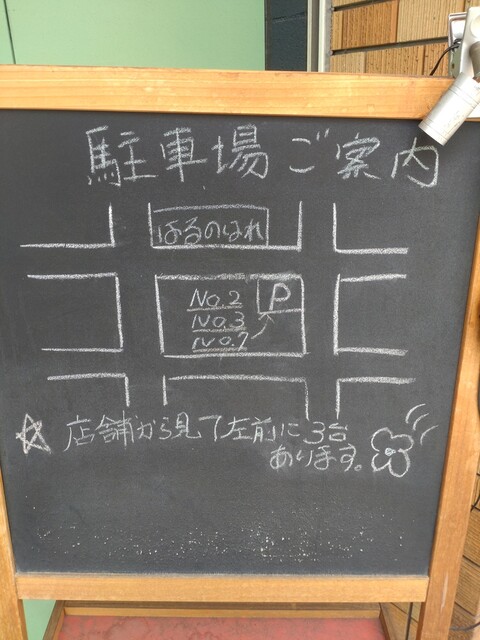 駐車場ご案内
はるのはれ
P
No.2
No.3
No.7
店舗から見て左前に3台
あります。